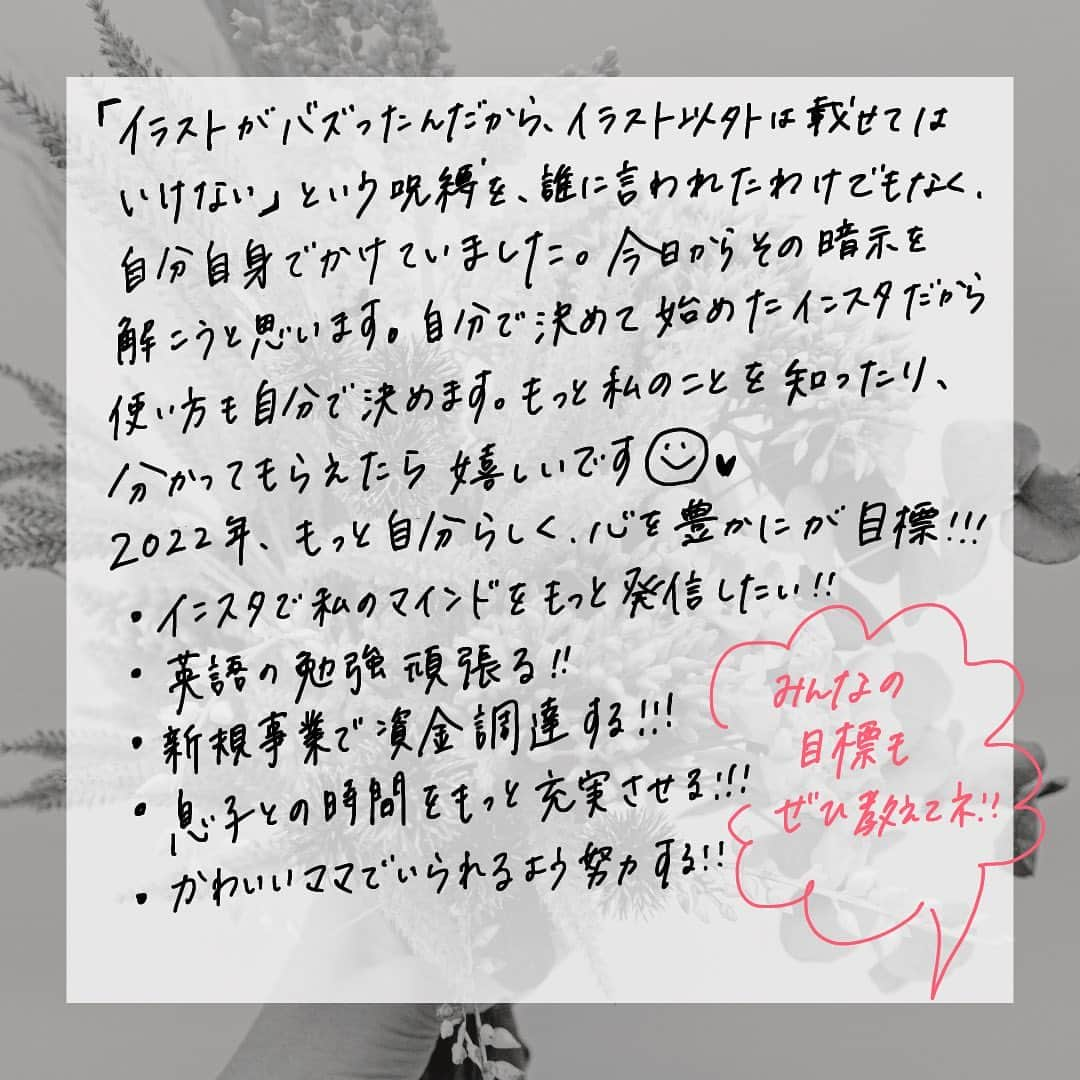 「イラストがバズったんだから、イラスト以外は載せては
いけない」という呪縛を、誰に言われたわけでもなく、
自分自身でかけていました。今日からその暗示を
解こうと思います。自分で決めて始めたインスタだから
使い方も自分で決めます。もっと私のことを知ったり、
分かってもらえたら嬉しいです
2022年、もっと自分らしく、心を豊かにが目標!!!
・インスタで私のマインドをもっと発信したい!!
・英語の勉強頑張る!!
・新規事業で資金調達する!!!
・息子との時間をもっと充実させる!!!
・かわいいママでいられるよう努力する!!
みんなの
目標も
ぜひ教えてネ!!